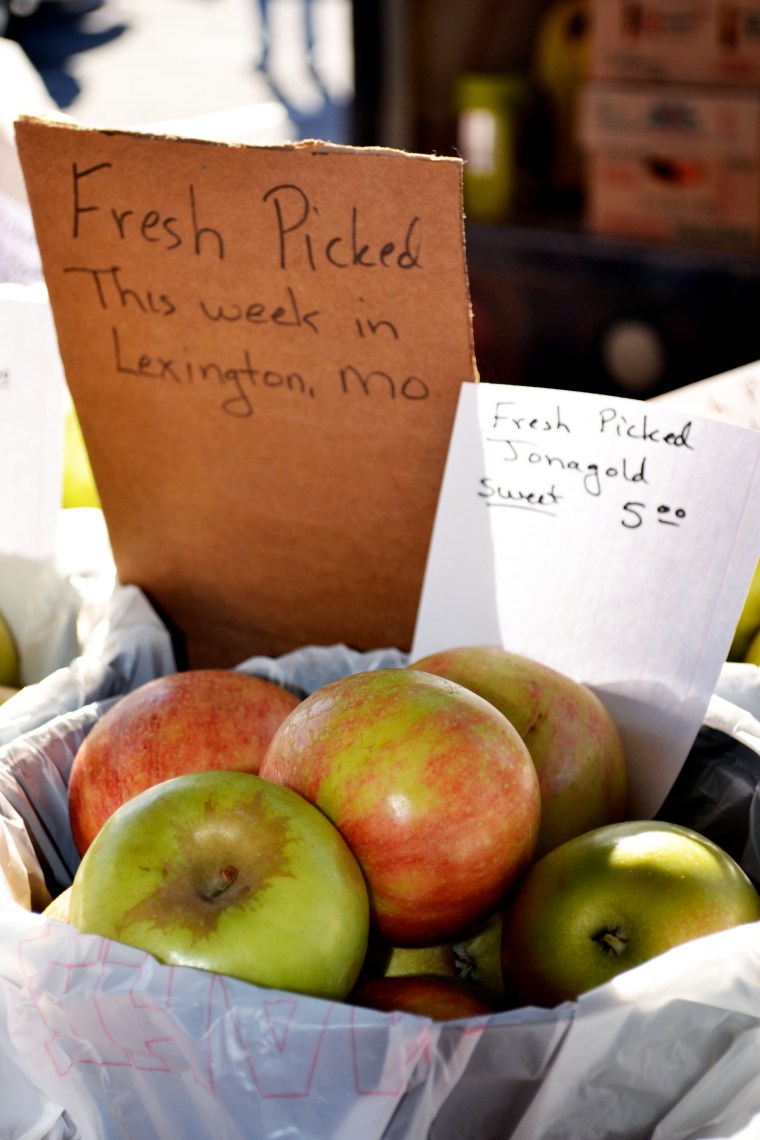 Fresh Picked
This week in
Lexington, MO
Fresh Picked
Jonagold
Sweet 5.00